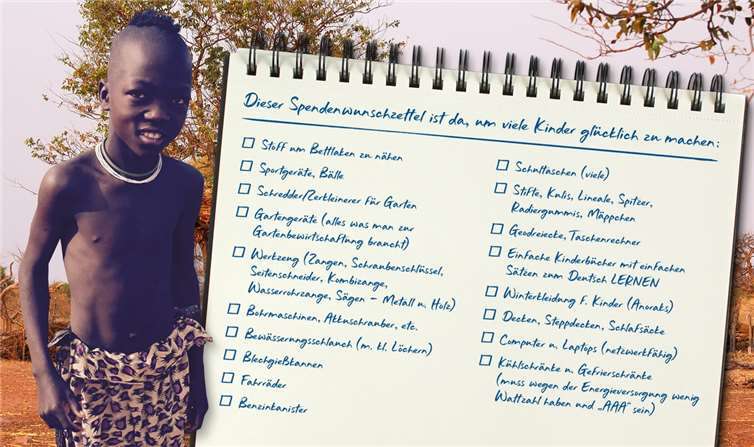 Dieser Spendenwunschzettel ist da, um viele Kinder glücklich zu machen:
Stoff um Bettlaken zu nähen
Sportgeräte, Bälle
Schredder/Zerkleinerer für Garten
Gartengeräte (alles was man zur
Gartenbewirtschaftung braucht)
Werkzeug (Zangen, Schraubenschlüssel,
Seitenschneider, Kombizange,
Wasserrohrzange, Sägen – Metall u. Holz)
Bohrmaschinen, Akkuschrauber, etc.
Bewässerungsschlauch (m. kl. Löchern)
Blechgießkannen
Fahrräder
Benzinkanister
Schultaschen (viele)
Stifte, Kulis, Lineale, Spitzer,
Radiergummis, Mäppchen
Geodreiecke, Taschenrechner
Einfache Kinderbücher mit einfachen
Sätzen zum Deutsch LERNEN
Winterkleidung f. Kinder (Anoraks)
Decken, Steppdecken, Schlafsäcke
Computer u. Laptops (netzwerkfähig)
Kühlschränke u. Gefrierschränke
(muss wegen der Energieversorgung wenig
Wattzahl haben und „AAA“ sein)